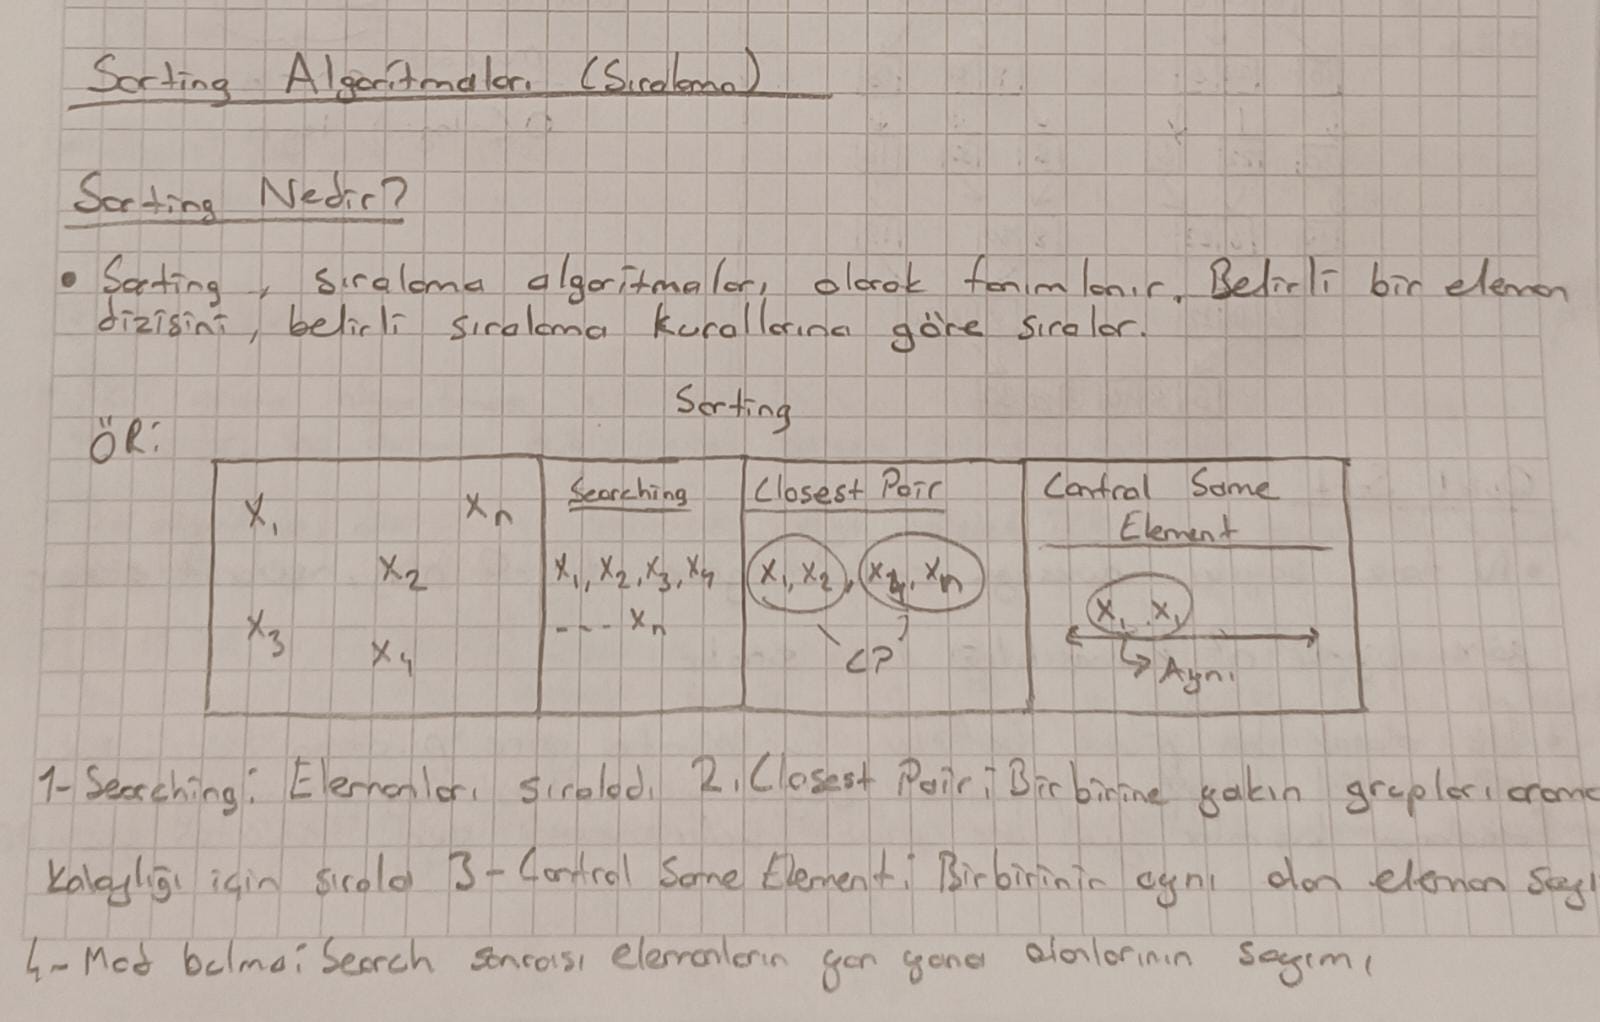 Sorting Algoritmaları (Sıralama)
Sorting Nedir?
• Sorting, sıralama algoritmaları olarak tanımlanır. Belirli bir eleman
dizisini, belirli sıralama kurallarına göre sıralar.
Sorting
ÖR:
x₁ xₙ
x₂
x₃
x₄
Searching
x₁, x₂, x₃, x₄
--- xₙ
Closest Pair
x₁, x₂, x₄, xₙ
CP
Control Same
Element
x₁ x₁
Aynı
1- Searching: Elemanları sıraladı 2. Closest Pair: Birbirine yakın grupları arama
kolaylığı için sırala 3- Control Same Element: Birbirinin aynı olan eleman sayı
4- Mod bulma: Search sonrası elemanların yan yana olanlarının sayımı